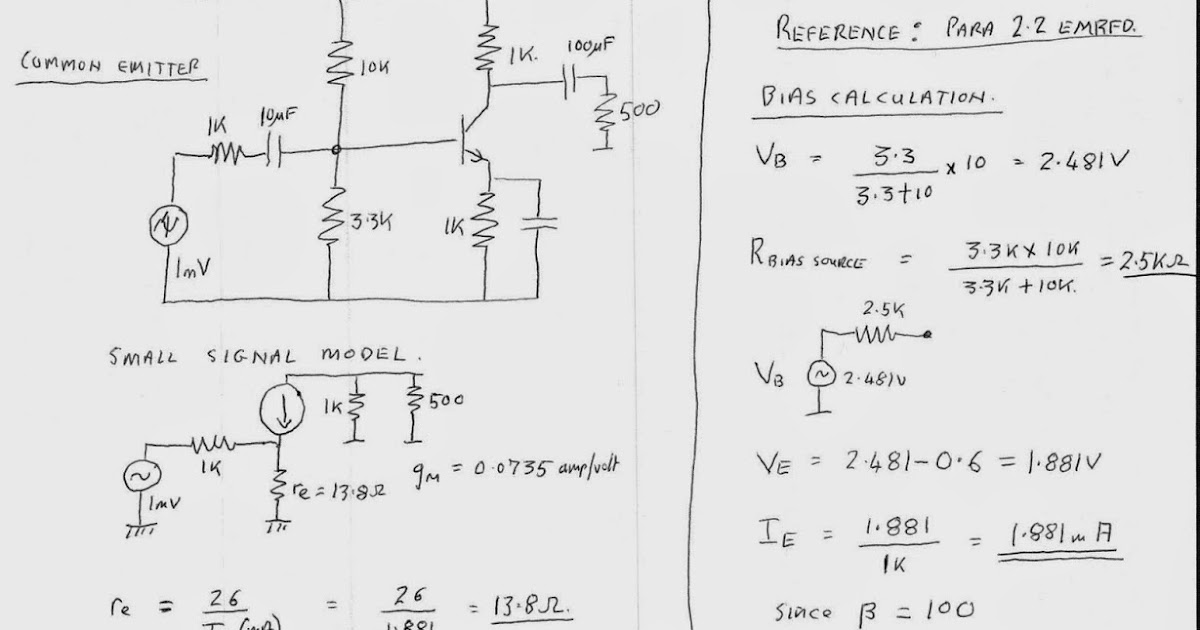 COMMON EMITTER
10K
1K.
100µF
500
1K
10µF
3.3K
1K
1mV
SMALL SIGNAL MODEL.
1K
500
1K
1mV
re = 13.8Ω
gM = 0.0735 amp/volt
re = 26 / I (mA) = 26 / 1.881 = 13.8Ω.
REFERENCE: PARA 2.2 EMRFD.
BIAS CALCULATION.
VB = 3.3 / 3.3+10 x 10 = 2.481V
RBIAS SOURCE = 3.3K x 10K / 3.3K + 10K. = 2.5KΩ
2.5K
VB 2.481V
VE = 2.481-0.6 = 1.881V
IE = 1.881 / 1K = 1.881mA
since β = 100